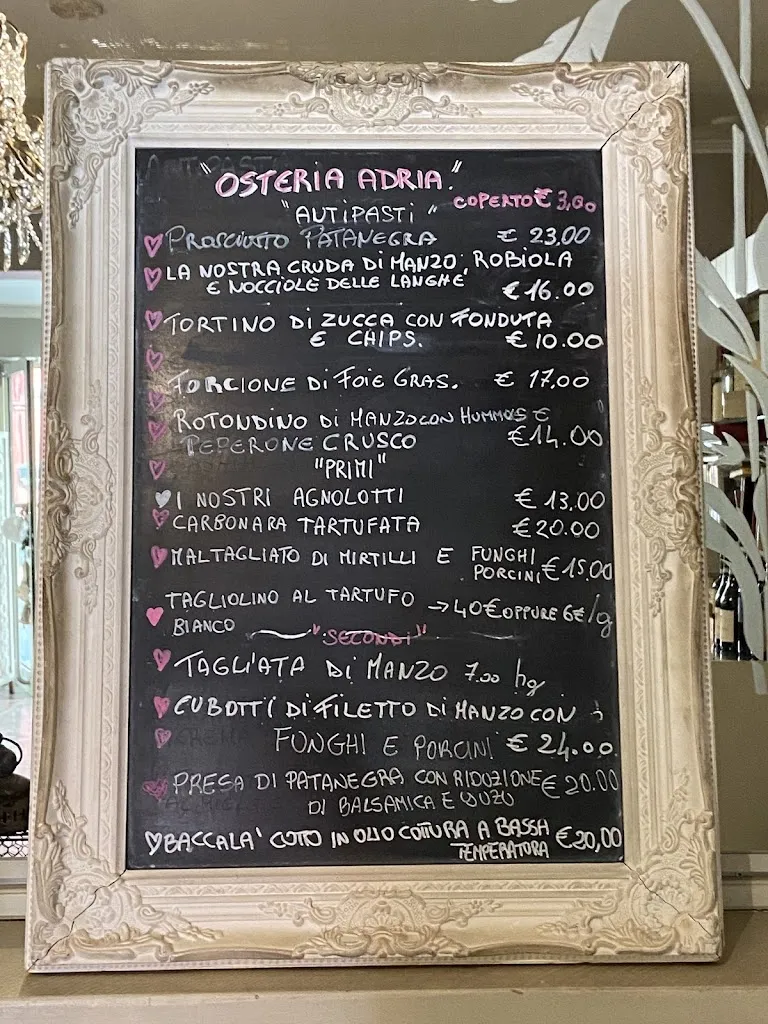 "OSTERIA ADRIA."
COPERTO € 3,00
"ANTIPASTI"
PROSCIUTTO PATANEGRA € 23,00
LA NOSTRA CRUDA DI MANZO, ROBIOLA
E NOCCIOLE DELLE LANGHE € 16.00
TORTINO DI ZUCCA CON FONDUTA
E CHIPS. € 10.00
TORCIONE DI FOIE GRAS. € 17,00
ROTONDINO DI MANZO CON HUMMUS E
PEPERONE CRUSCO € 14.00
"PRIMI"
I NOSTRI AGNOLOTTI € 13.00
CARBONARA TARTUFATA € 20.00
MALTAGLIATO DI MIRTILLI E FUNGHI
PORCINI € 15.00
TAGLIOLINO AL TARTUFO → 40€ OPPURE 6€/g
BIANCO
"SECONDI"
TAGLI'ATA DI MANZO 7.00 hg
CUBOTTI DI FILETTO DI MANZO CON
FUNGHI E PORCINI € 24.00
PRESA DI PATANEGRA CON RIDUZIONE € 20.00
DI BALSAMICA E YUZU
BACCALA' COTTO IN OLIO COTTURA A BASSA € 20,00
TEMPERATURA